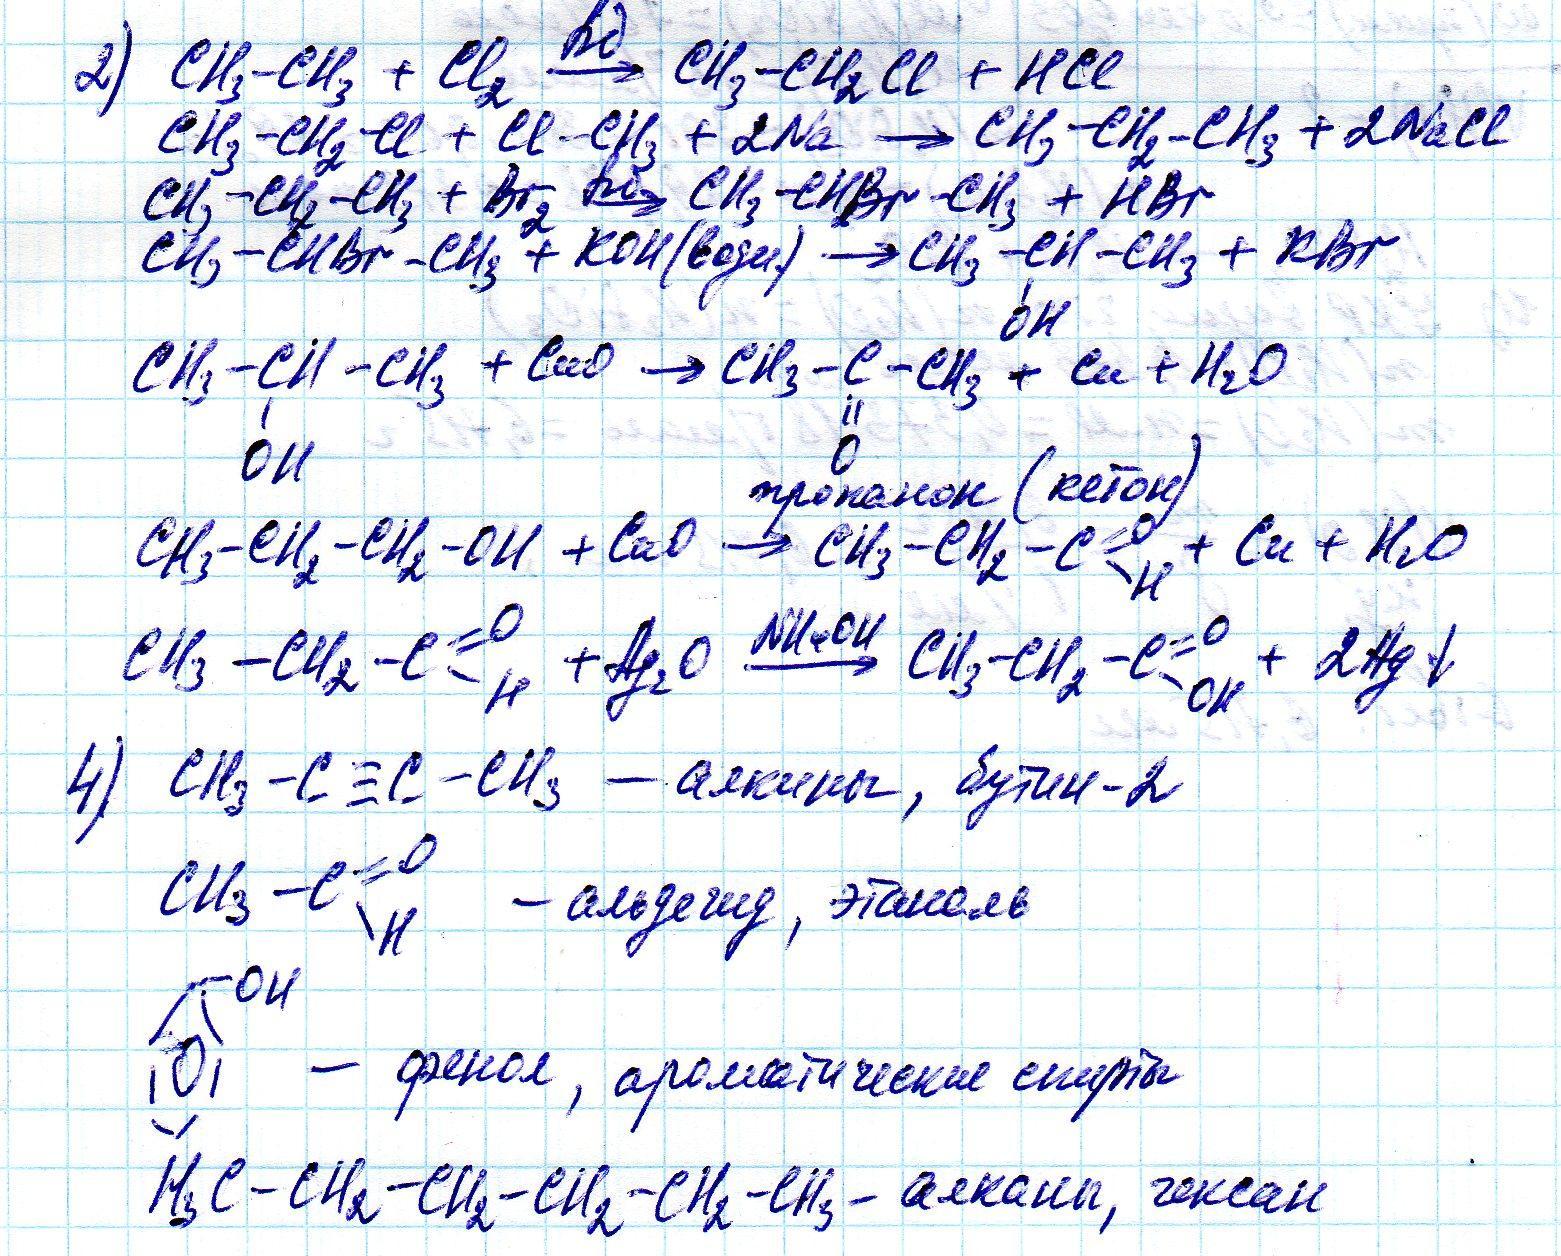 2) CH₃-CH₃ + Cl₂ hν→ CH₃-CH₂Cl + HCl
CH₃-CH₂-Cl + Cl-CH₃ + 2Na → CH₃-CH₂-CH₃ + 2NaCl
CH₃-CH₂-CH₃ + Br₂ hν→ CH₃-CHBr-CH₃ + HBr
CH₃-CHBr-CH₃ + KOH(водн.) → CH₃-CH-CH₃ + KBr
OH
CH₃-CH-CH₃ + CuO → CH₃-C-CH₃ + Cu + H₂O
OH O
пропанон (кетон)
CH₃-CH₂-CH₂-OH + CuO → CH₃-CH₂-C=O H + Cu + H₂O
CH₃-CH₂-C=O H + Ag₂O NH₄OH→ CH₃-CH₂-C=O OH + 2Ag↓
4) CH₃-C≡C-CH₃ - алкины, бутин-2
CH₃-C=O H - альдегид, этаналь
OH
- фенол, ароматические спирты
H₃C-CH₂-CH₂-CH₂-CH₂-CH₃ - алканы, гексан